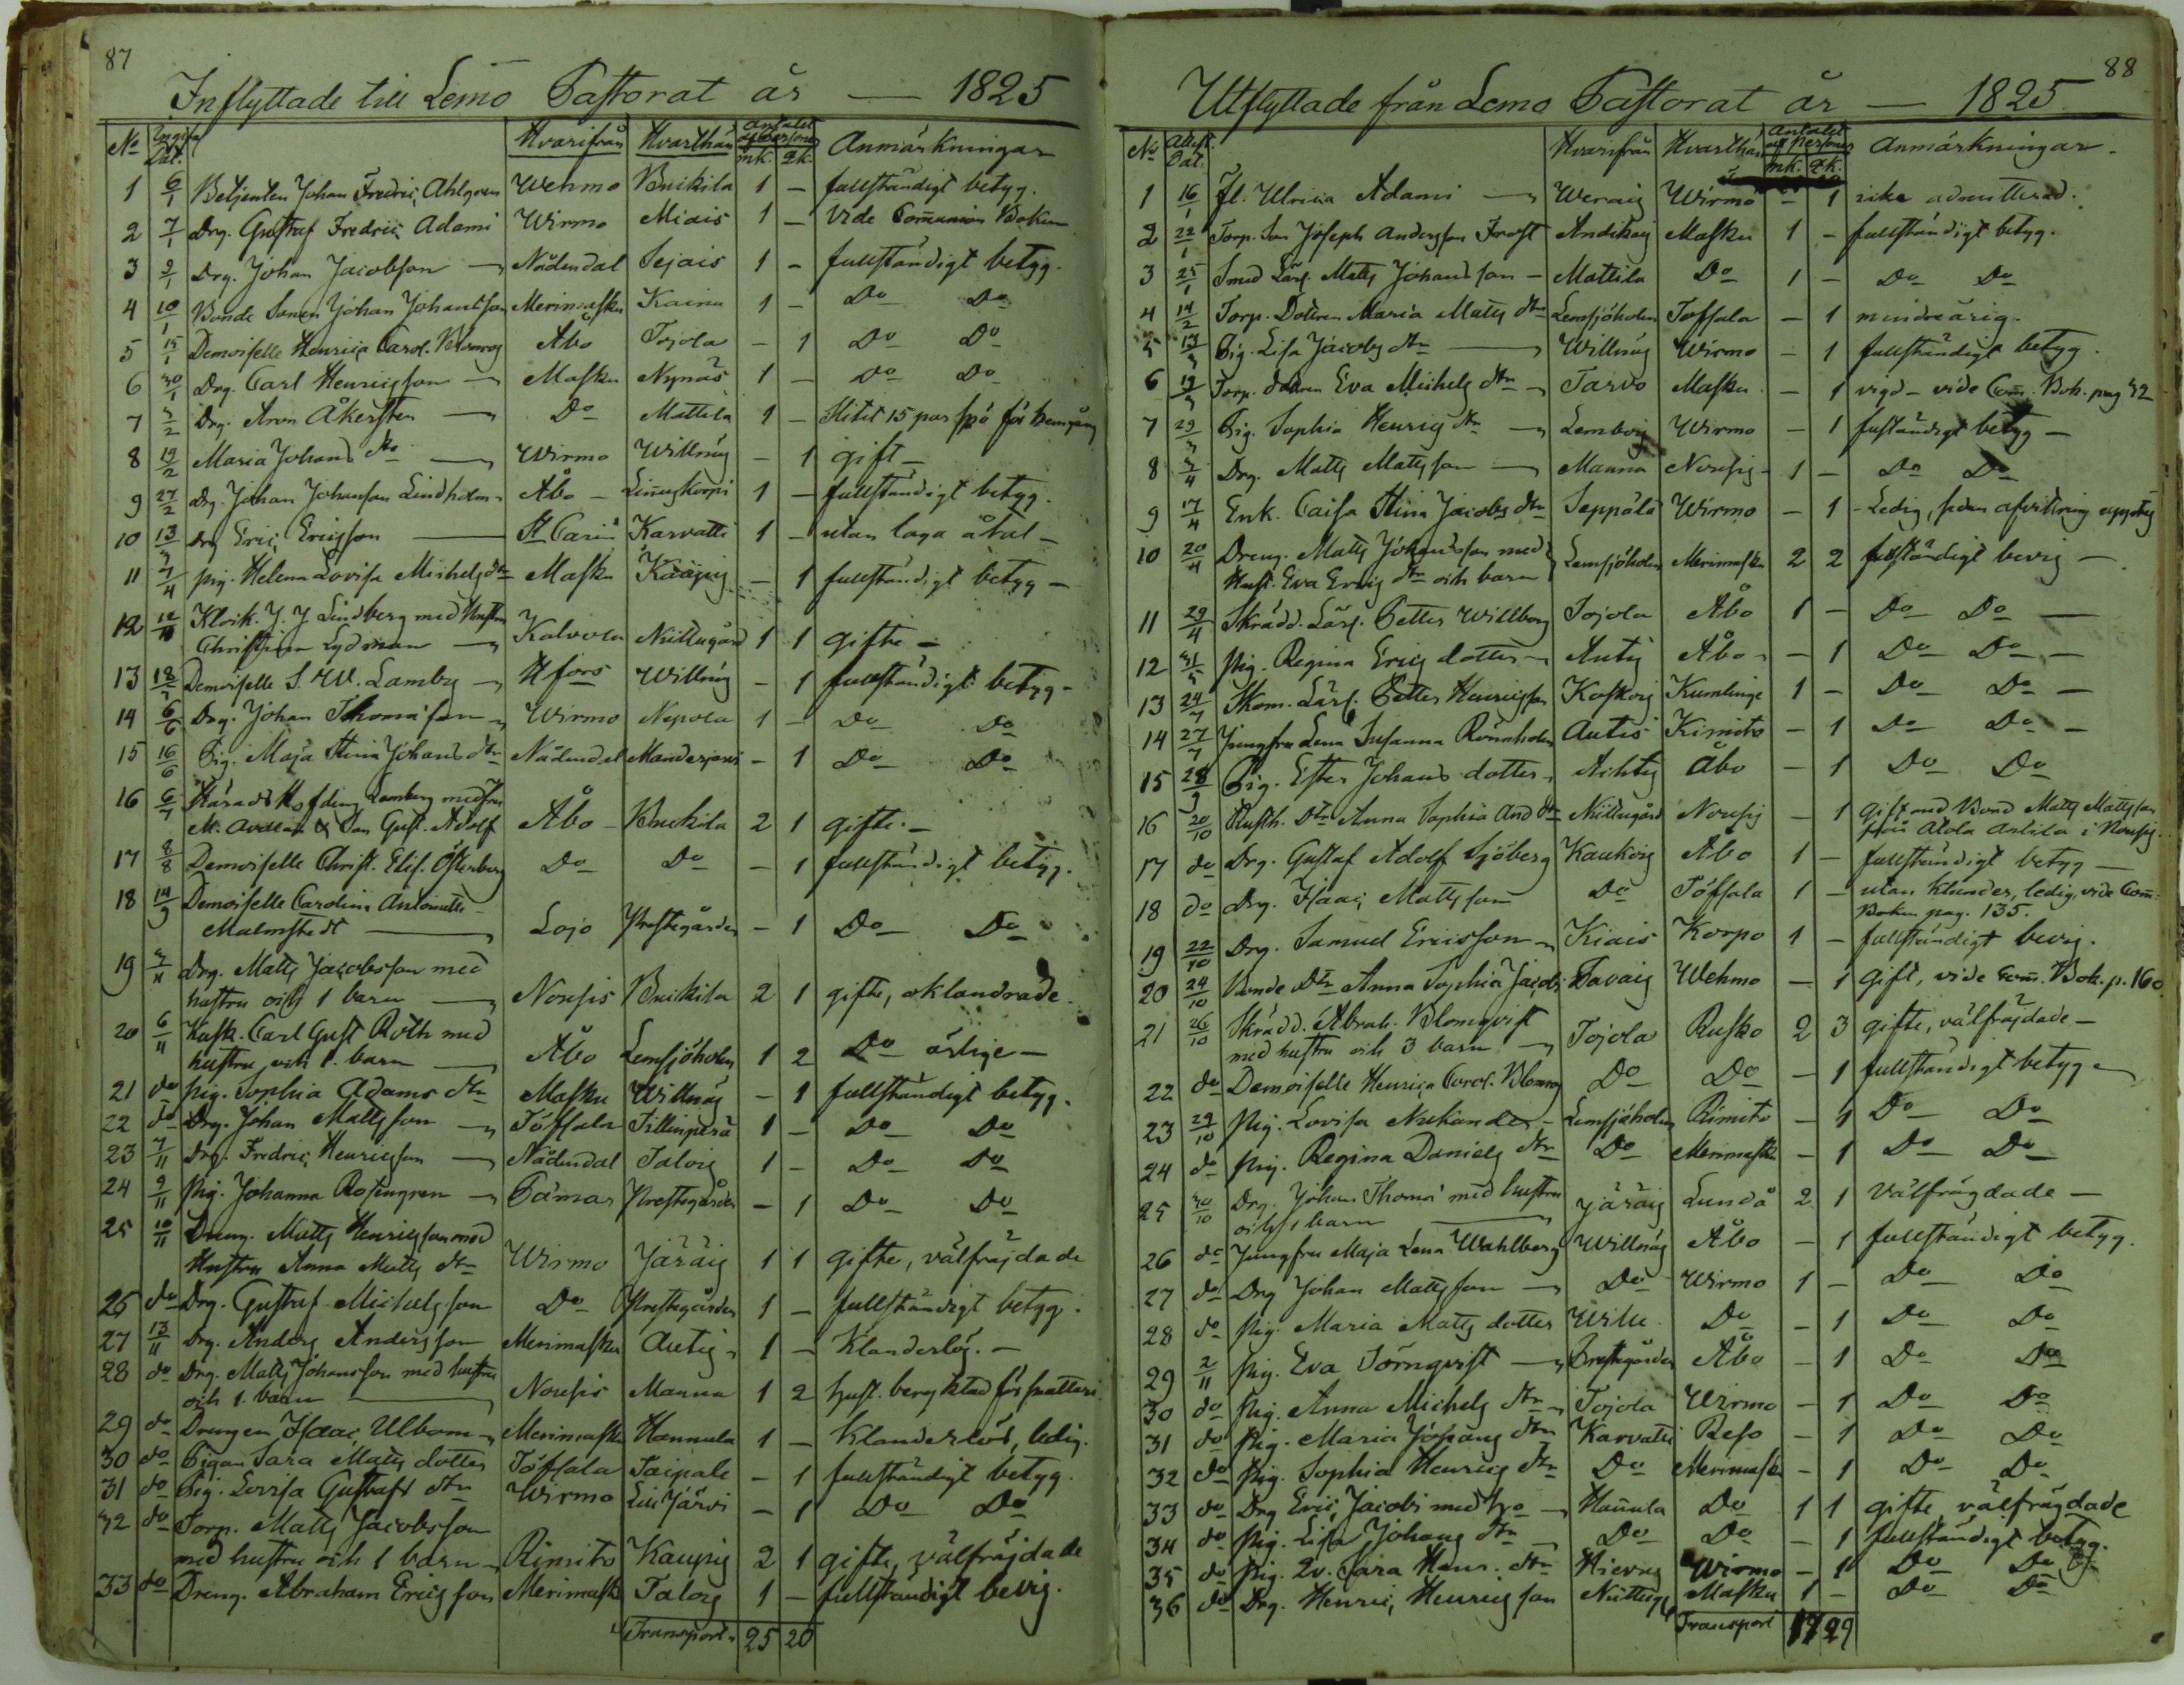 87
Inflyttade till Lemo Pastorat år — 1825
No Ingifv. Dat. Hvarifrån Hvarthän Antalet af Personer mk. qk. Anmärkningar
1 6/1 Betjenten Johan Fredric Ahlgren Wehmo Buikila 1 – fullständigt betyg.
2 7/1 Drg. Gustaf Fredric Adami Wirmo Miais 1 – Vide Communion Boken
3 9/1 Drg. Johan Jacobsson — Nådendal Sejais 1 – fullständigt betyg.
4 10/1 Bonde Sonen Johan Johansson Merimasku Kaina 1 – Do Do
5 15/1 Demoiselle Henrica Carol. Blomroos Åbo Tojola – 1 Do Do
6 30/1 Drg. Carl Henricsson — Masku Nynäs 1 – Do Do
7 3/2 Drg. Aron Åkersten — Do Mattila 1 – Slitit 15 par spö för
8 19/2 Maria Johans dtr — Wirmo Willnäs – 1 gift –
9 27/2 Drg. Johan Johansson Lindholm – Åbo – 1 – fullständigt betyg.
10 13/3 Drg Eric Ericsson — St Carin Karvatti 1 – utan laga åtal –
11 7/4 pig. Helena Lovisa Michels dtr Masku Kaäpig – 1 fullständigt betyg –
12 Klock. J. J. Lindberg med hustru
Christina Lydman — Kalvola Niittugård 1 1 gifte –
13 Demoiselle S. W. Lamberg — Hfors Willnäs – 1 fullständigt betyg –
14 6/6 Drg. Johan Thomasson — Wirmo Nepola 1 – Do Do
15 16/6 Pig. Maja Stina Johans dtr Nådendal – 1 Do Do
16 6/7 Härads Höfding Lamberg med fru
M. & Son Gust. Adolf Åbo – Buikila 2 1 gifte. –
17 8/8 Demoiselle Christ. Elis. Österberg Do Do – 1 fullständigt betyg.
18 14/9 Demoiselle Carolina Antoinette
Malmstedt — Lojo Prestegården – 1 Do Do
19 Drg. Matts Jacobsson med
hustru och 1 barn — Nousis Buikila 2 1 gifte, oklandrade
20 6/11 Kusk. Carl Gust Roth med
hustru och 1. barn — Åbo Lemsjöholm 1 2 Do ärlige –
21 do pig. Sophia Adams dtr Masku Willnäs – 1 fullständigt betyg.
22 do Drg. Johan Mattsson — Töfsala Tillinperä 1 – Do Do
23 7/11 Drg. Fredric Henricsson — Nådendal Talois 1 – Do Do
24 9/11 Pig. Johanna Rosengren — Pämar Prestegården – 1 Do Do
25 10/11 Dreng. Matts Henricsson med
Hustru Anna Matts dtr Wirmo Järäis 1 1 gifte, välfräjdade
26 do Drg. Gustaf Michelsson Do Prestegården 1 – fullständigt betyg.
27 13/11 Drg. Anders Andersson Merimasku Autis 1 – Klanderlös. –
28 do Drg. Matts Johansson med hustru
och 1. barn — Nousis Manna 1 2 hust. beryktad för snatteri
29 do Drengen Isaac Ulbom – Merimasku Hannula 1 – Klanderlös, ledig.
30 do Pigan Sara Matts dotter Töfsala Taipale – 1 fullständigt betyg.
31 do Pig. Lovisa Gustafs dtr Wirmo Lill Järvi – 1 Do Do
32 do Torp. Matts Jacobsson
med hustru och 1 barn – Rimito Kaupis 2 1 gifte, välfräjdade
33 do Dreng. Abraham Ericsson Merimasku Talois 1 – fullständigt bevis.
Transport. 25 20
88
Utflyttade från Lemo Pastorat år — 1825
No Attest. Dat. Hvarifrån Hvarthän Antalet af Personer mk. qk. Anmärkningar.
1 16/1 fl. Ulrica Adami — Werais Wirmo – 1 icke admitterad.
2 22/1 Torp. Son Joseph Andersson Frost Andikais Masku 1 – fullständigt betyg.
3 25/1 Smed Lärl. Matts Johansson – Mattila Do 1 – Do Do
4 14/2 Torp. Dottren Maria Matts dtr Lemsjöholm Töfsala – 1 minderårig.
5 13/3 Pig. Lisa Jacobs dtr — Willnäs Wirmo – 1 fullständigt betyg.
6 19/3 Torp. dottren Eva Michels dtr – Tarvo Masku – 1 vigd – vide Com. Bok. pag 32
7 29/3 Pig. Sophia Henrics dtr — Lembois Wirmo – 1 fuständigt betyg –
8 3/4 Drg. Matts Mattsson — Manna Nousis – 1 – Do Do
9 17/4 Enk. Caisa Stina Jacobs dtr Seppälä Wirmo – 1 – Ledig, sedan afvittring uppstig
10 20/4 Dreng. Matts Johansson med
Hust. Eva Erics dtr och barn Lemsjöholm Merimasku 2 2 fullständigt bevis –
11 29/4 Skrädd. Lärl. Petter Willberg Tojola Åbo 1 – Do Do –
12 31/5 pig. Regina Erics dotter – Autis Åbo – – 1 Do Do –
13 24/7 Skom. Lärl. Petter Henricsson Koskois Kumlinge 1 – Do Do –
14 27/7 Jungfru Lena Susanna Rönnholm Autis Kimito – 1 Do Do –
15 28/9 Pig. Ester Johans dotter – Achtis Åbo – 1 Do Do
16 20/10 Rusth. Dtr Anna Sophia And dtr Niittugård Nousis – 1 Gift med Bond Matts Mattsson
från Alola Anttila i Nousis.
17 do Drg. Gustaf Adolf Sjöberg Kaukois Åbo 1 – fullständigt betyg –
18 do Drg. Isaac Mattsson Do Töfsala 1 – utan klander, ledig, vide Com:
Boken pag. 135.
19 22/10 Drg. Samuel Ericsson – Kiais Korpo 1 – fullständigt bevis.
20 24/10 Bonde Dtr Anna Sophia Jacobs Tavais Wehmo – 1 gift, vide Com. Bok. p. 160.
21 26/10 Skrädd. Abrah. Blomqvist
med hustru och 3 barn — Tojola Rusko 2 3 gifte, välfräjdade –
22 do Demoiselle Henrica Carol. Blomroos Do Do – 1 fullständigt betyg –
23 29/10 Pig. Lovisa Nukander – Lemsjöholm Rimito – 1 Do Do
24 do pig. Regina Daniels dtr Do Merimasku – 1 Do Do
25 30/10 Drg. Johan Thoma med hustru
och 1 barn — Järäis Lundå 2 1 Välfrägdade –
26 do Jungfru Maja Lena Wahlberg Willnäs Åbo – 1 fullständigt betyg.
27 do Drg Johan Mattsson — Do Wirmo 1 – Do Do
28 do pig. Maria Matts dotter Wilu Do – 1 Do Do
29 2/11 pig. Eva Törnqvist — Prestegården Åbo – 1 Do Do
30 do pig. Anna Michels dtr – Tojola Wirmo – 1 Do Do
31 do pig. Maria Johans dtr Karvatti Reso – 1 Do Do
32 do pig. Sophia Henrics dtr Do Merimasku – 1 Do Do
33 do Drg Eric Jacobs med ho – Hanula Do 1 1 gifte, välfrägdade
34 do Pig. Lisa Johans dtr Do Do – 1 fullständigt betyg.
35 do pig. Qv. Sara Henr. dtr Hievois Wirmo – 1 Do Do
36 do Drg. Henric Henricsson Masku 1 – Do Do
Transport 17 29